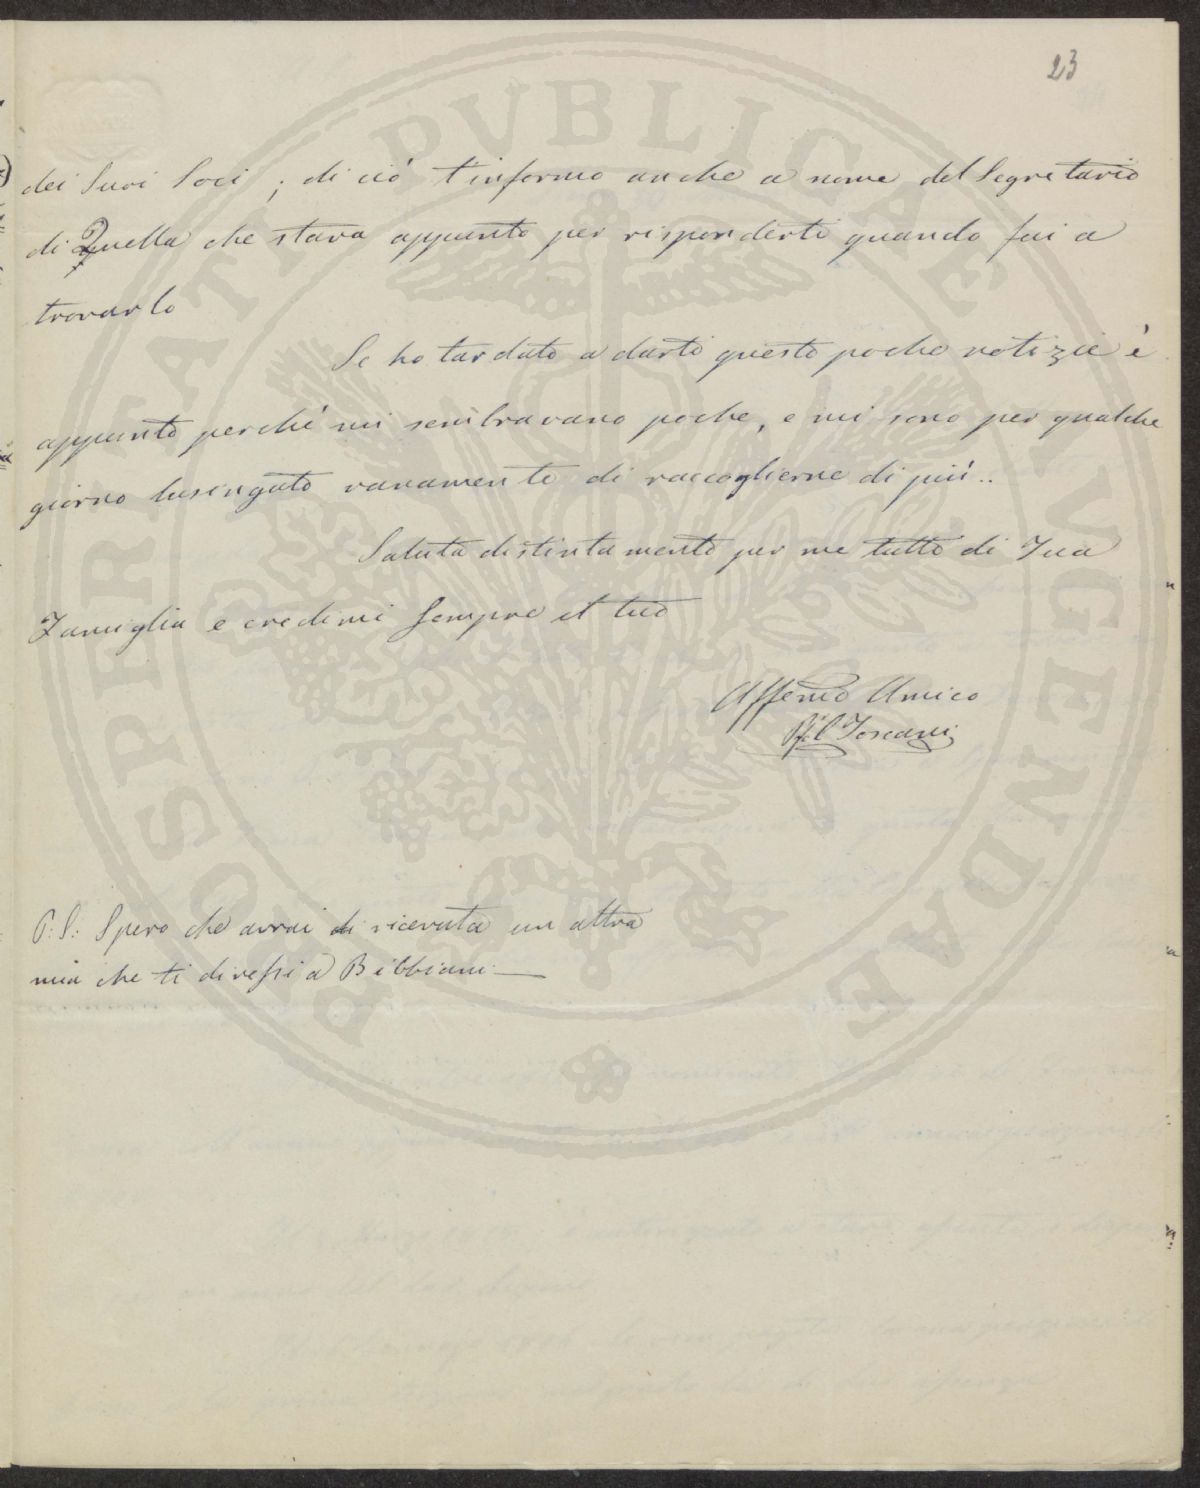 23
dei Suoi Soci ; di ciò t'informo anche a nome del Segretario
di Quella che stava appunto per risponderti quando fui a
trovarlo
Se ho tardato a darti queste poche notizie è
appunto perchè mi sembravano poche, e mi sono per qualche
giorno lusingato vanamente di raccoglierne di più..
Saluta distintamente per me tutta di Tua
Famiglia e credimi sempre il tuo
Affemo Amico
Toscani
P.S: Spero che avrai di ricevuta un altra
mia che ti diressi a Bibbiani —
PROSPERITATI PVBLICAE AVGENDAE